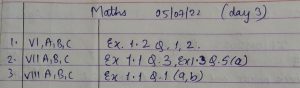 Maths 05/07/22 (day 3)
1. VI, A, B, C Ex. 1.2 Q. 1, 2.
2. VII A, B, C Ex 1.1 Q. 3, Ex 1.3 Q.5(a)
3. VIII A, B, C Ex 1.1 Q.1 (a, b)